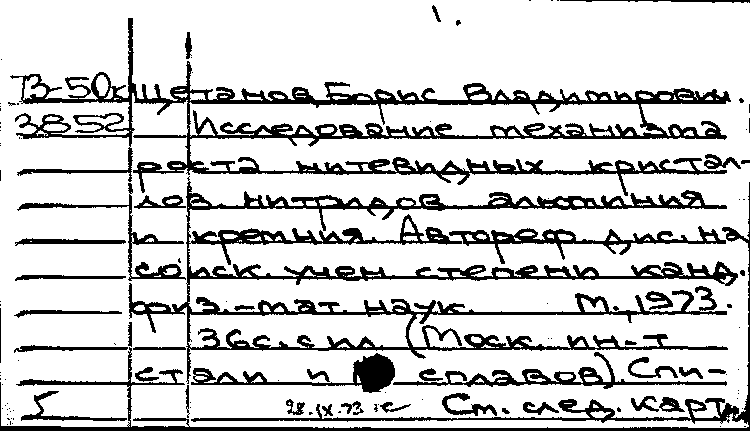 1.
ТЗ-50к Щетанов Борис Владимирович.
3852 Исследование механизма
роста нитевидных кристал-
лов нитридов алюминия
и кремния. Автореф. дис. на
соиск. учен. степени канд.
физ.-мат. наук. М., 1973.
36с. с ил. (Моск. ин-т
стали и сплавов). Спи-
5 28.IX.73 См. след. карт